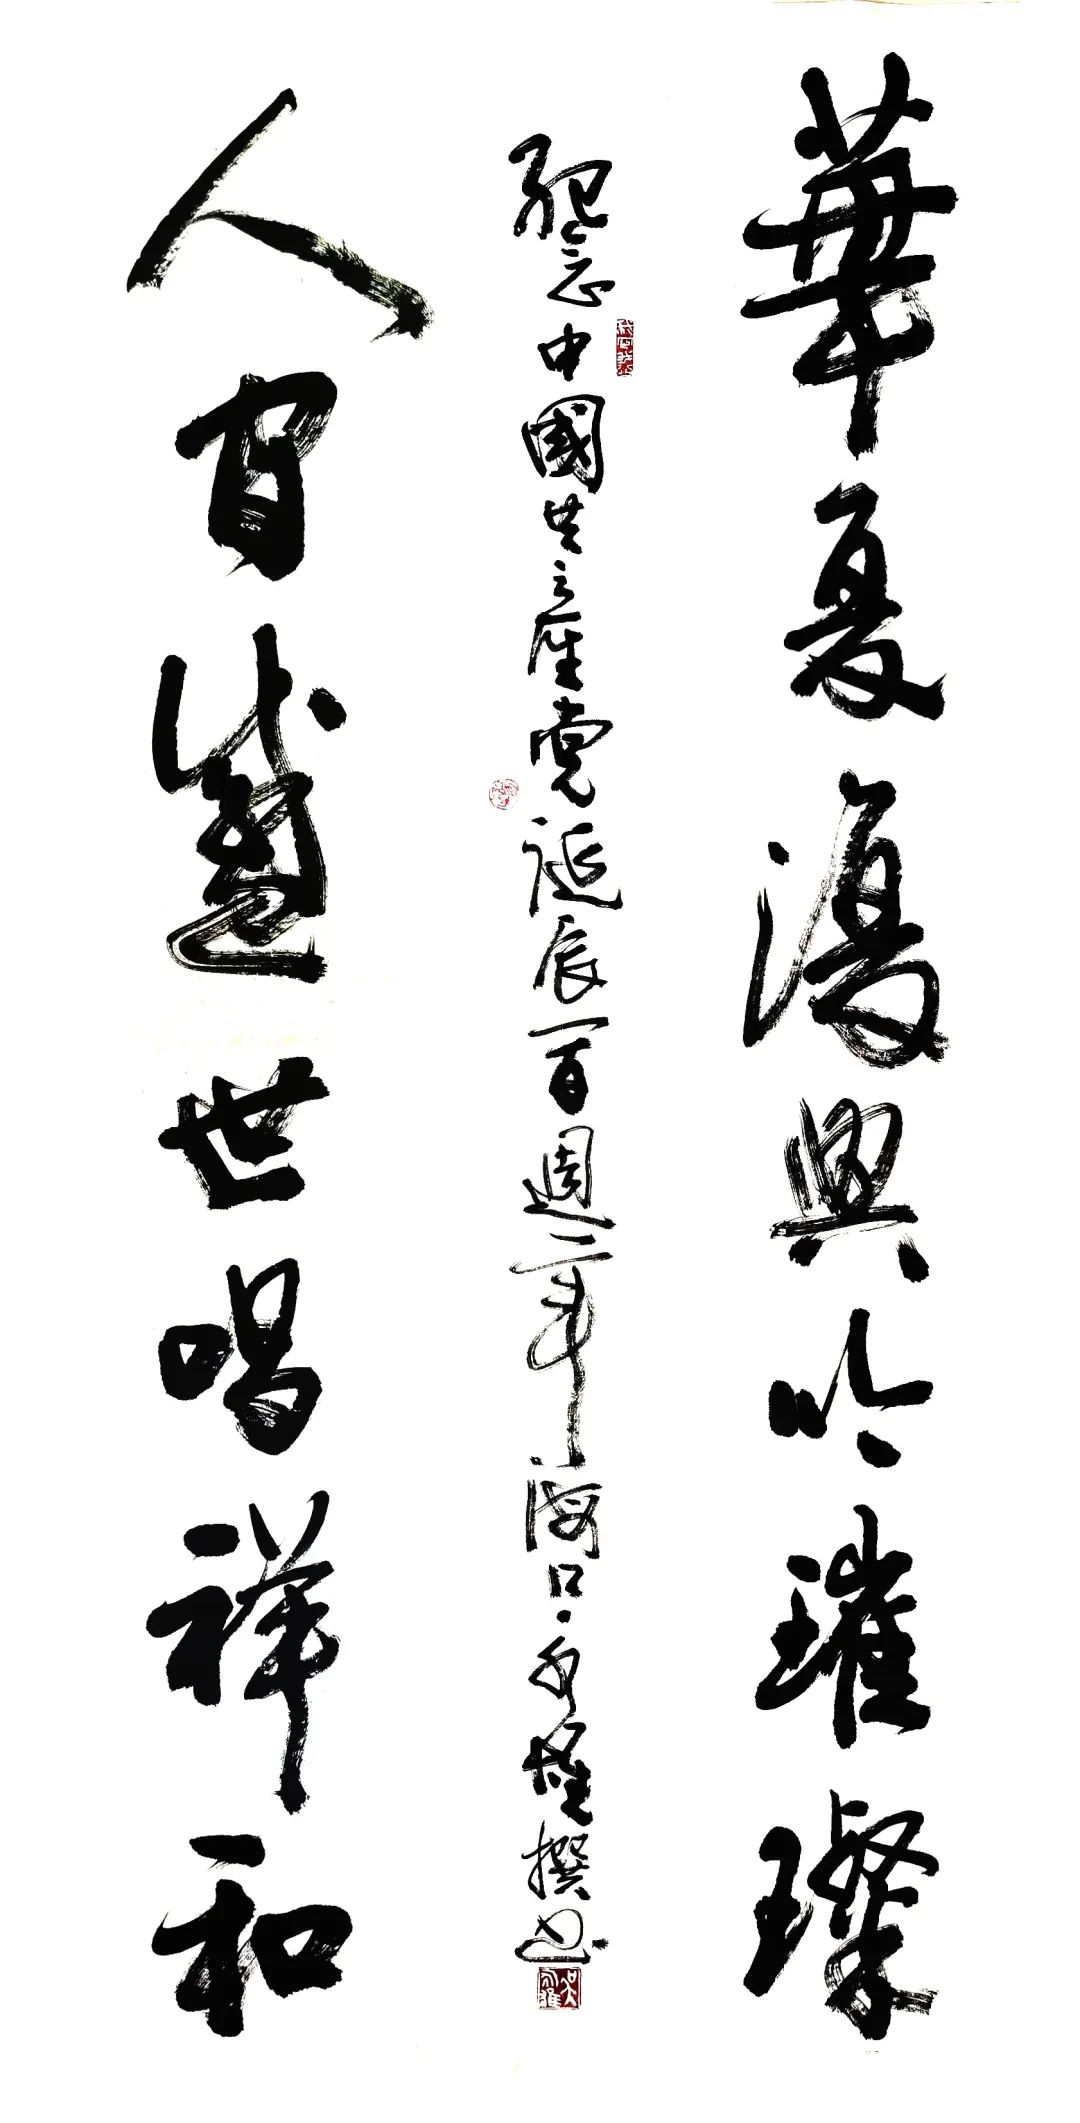 華夏復興吟璀璨
紀念中國共產黨誕辰一百週年海口撰書
人間盛世唱祥和